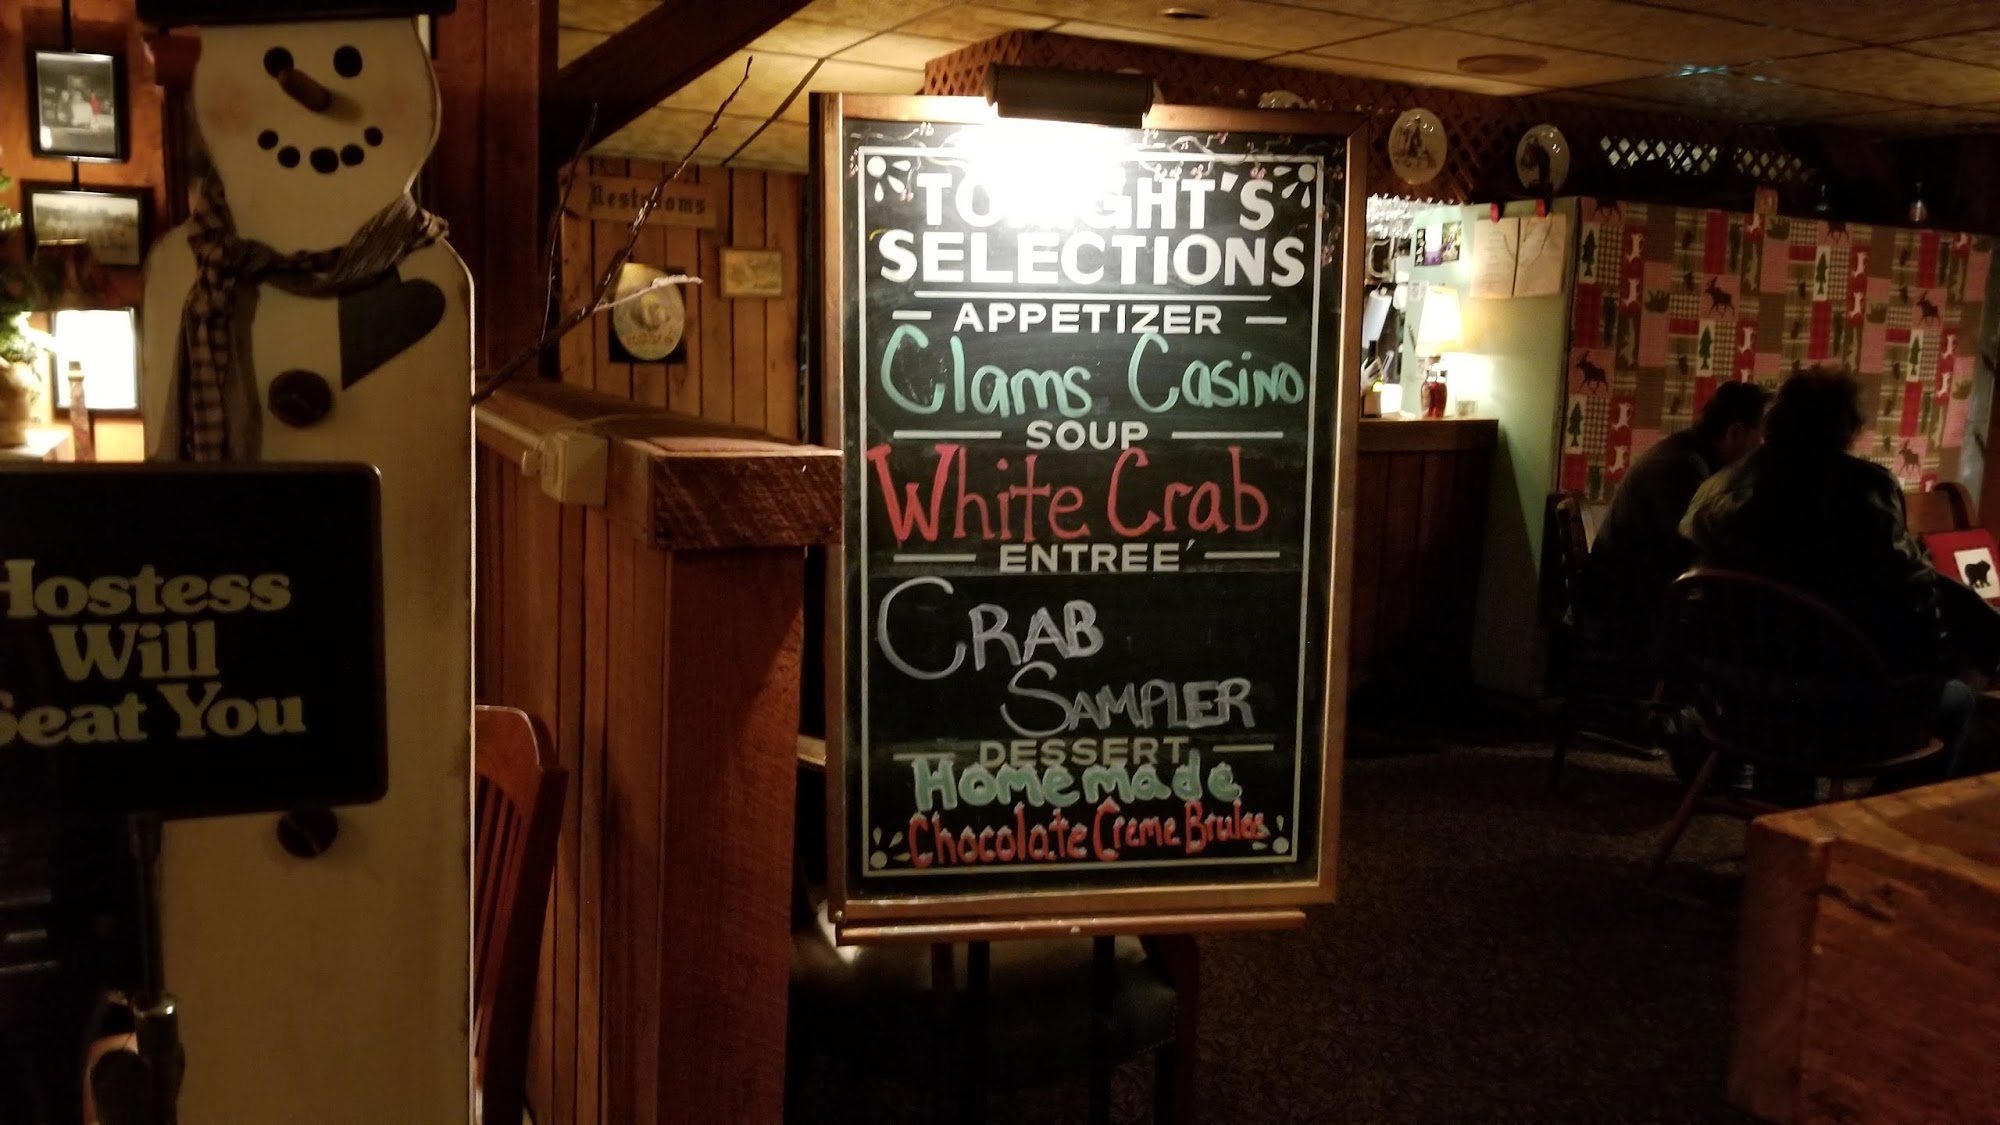 Restrooms
TONIGHT'S
SELECTIONS
APPETIZER
Clams Casino
SOUP
White Crab
ENTREE´
CRAB
SAMPLER
DESSERT
Homemade
Chocolate Crème Brulee
Hostess
Will
Seat You